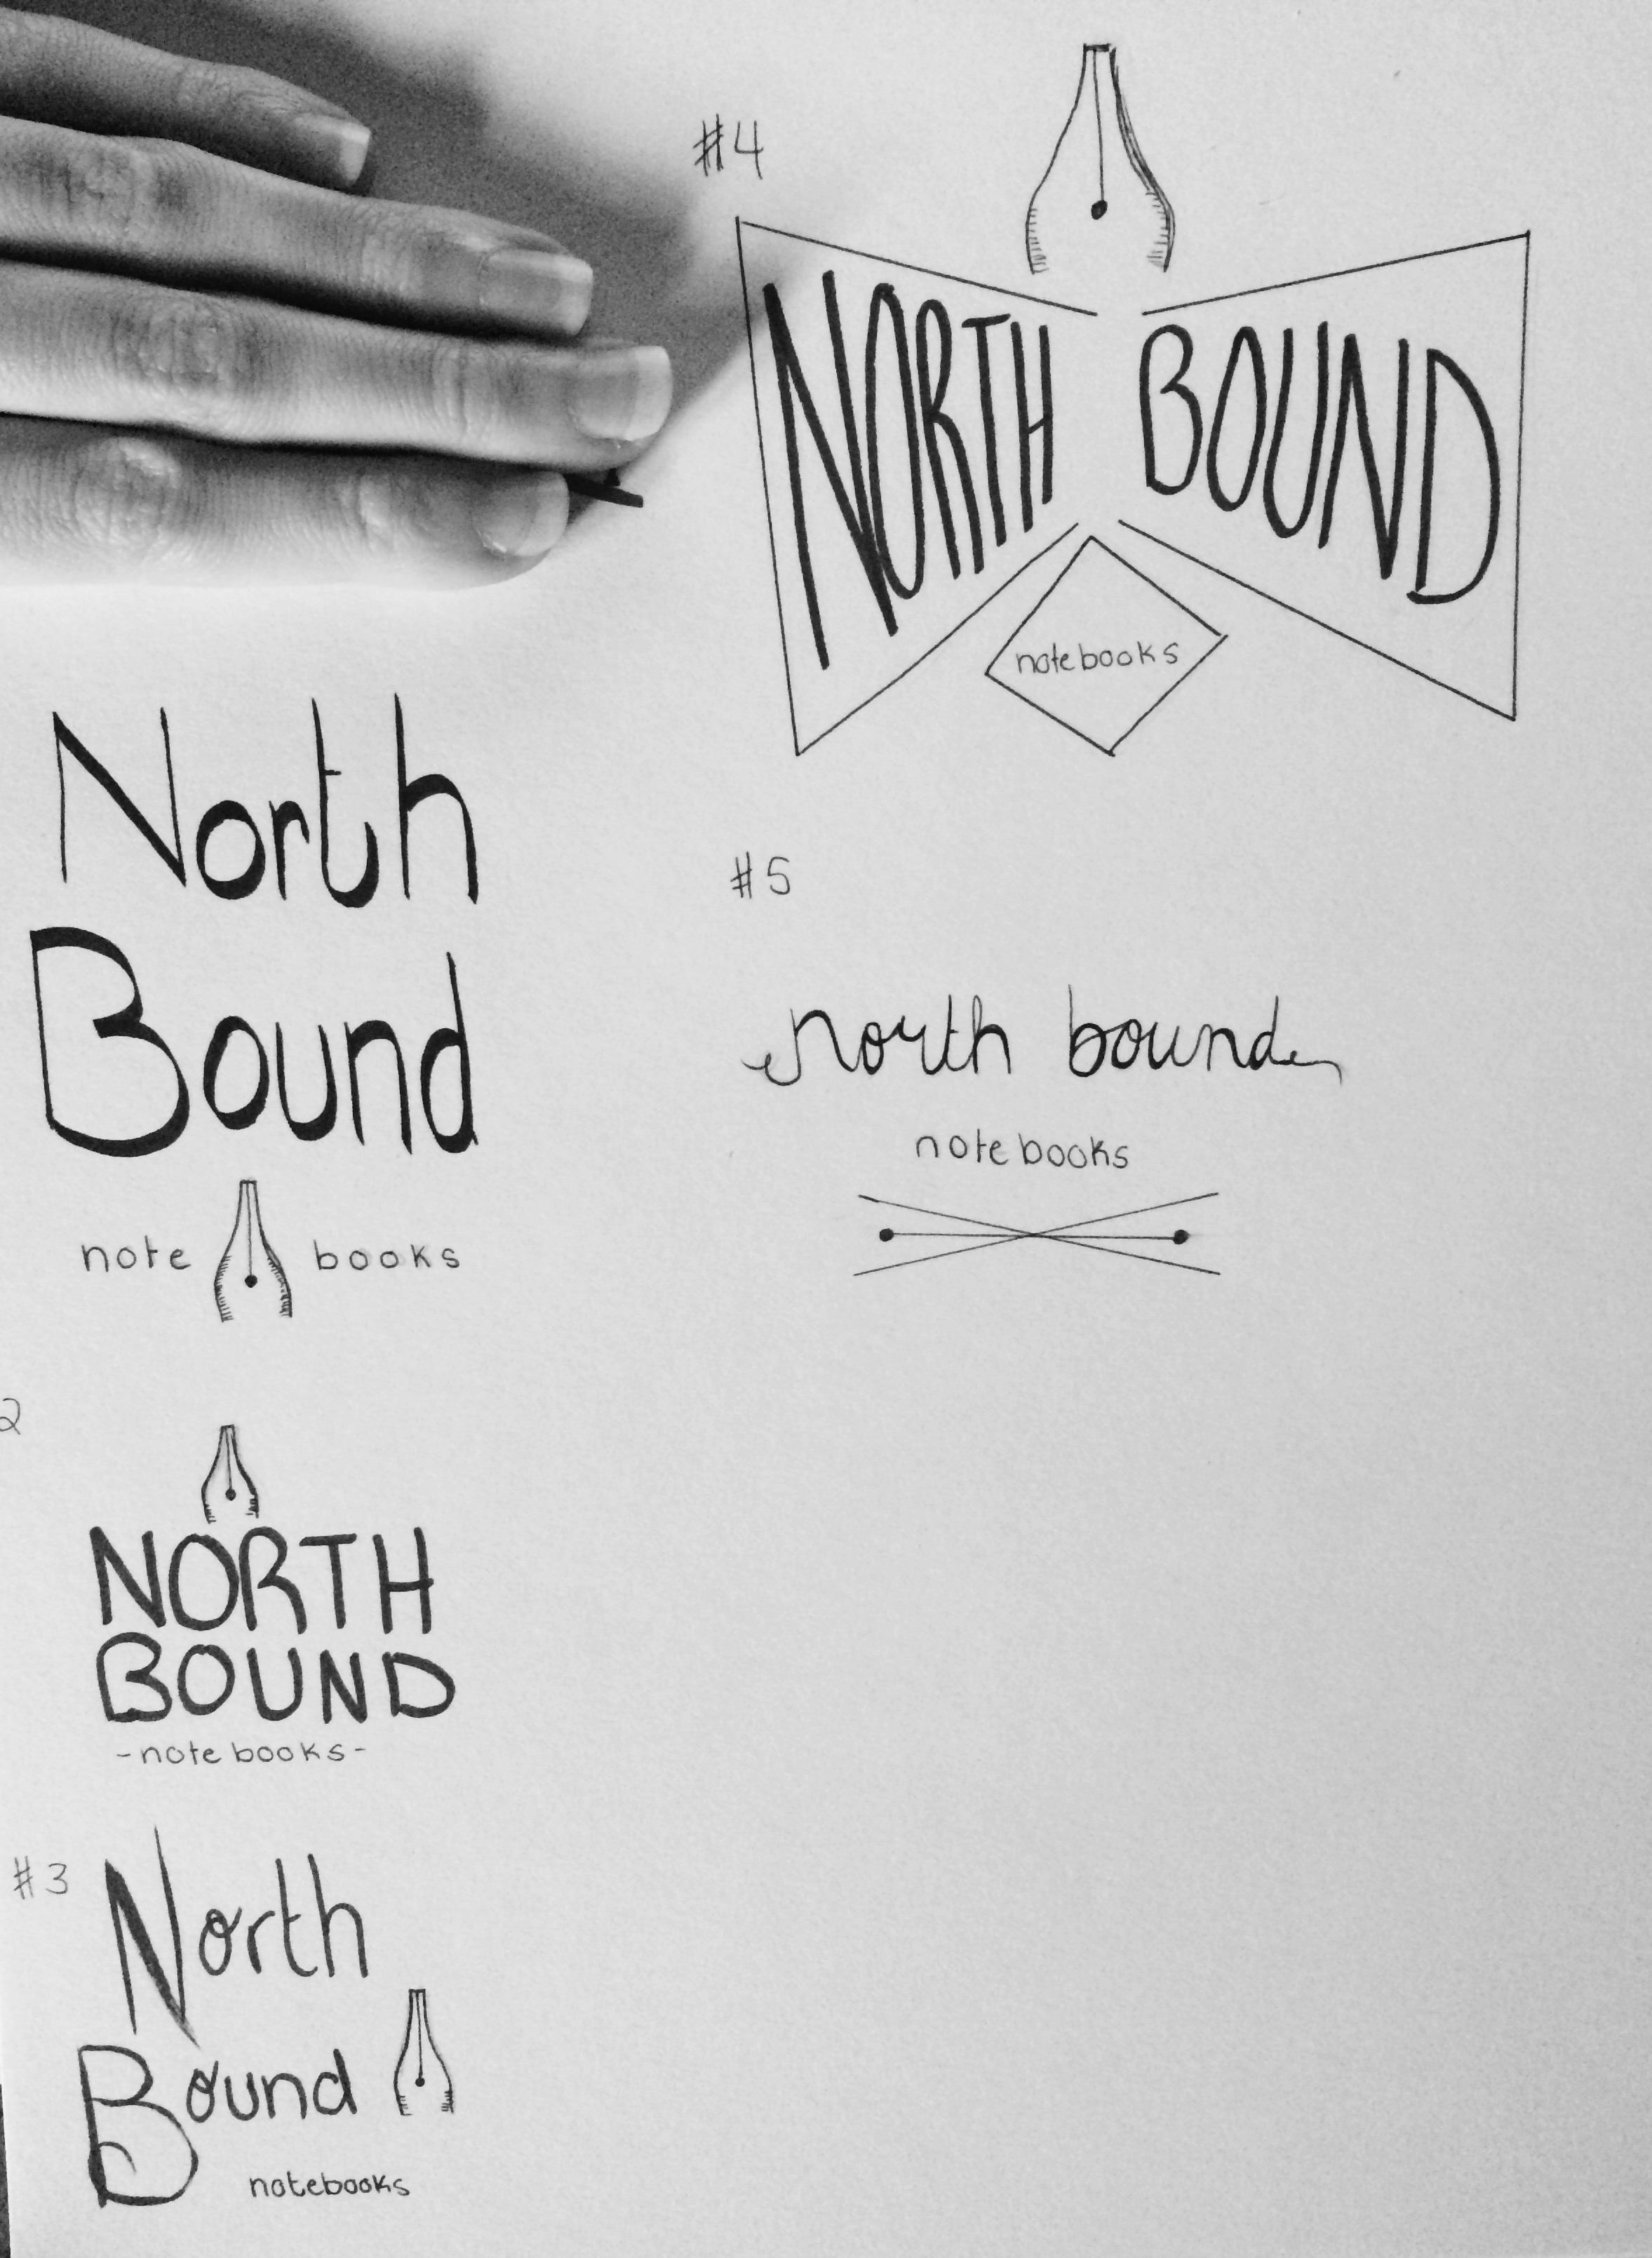 North
Bound
note books
2
NORTH
BOUND
-note books-
#3
North
Bound
notebooks
#4
NORTH BOUND
notebooks
#5
north bound
notebooks